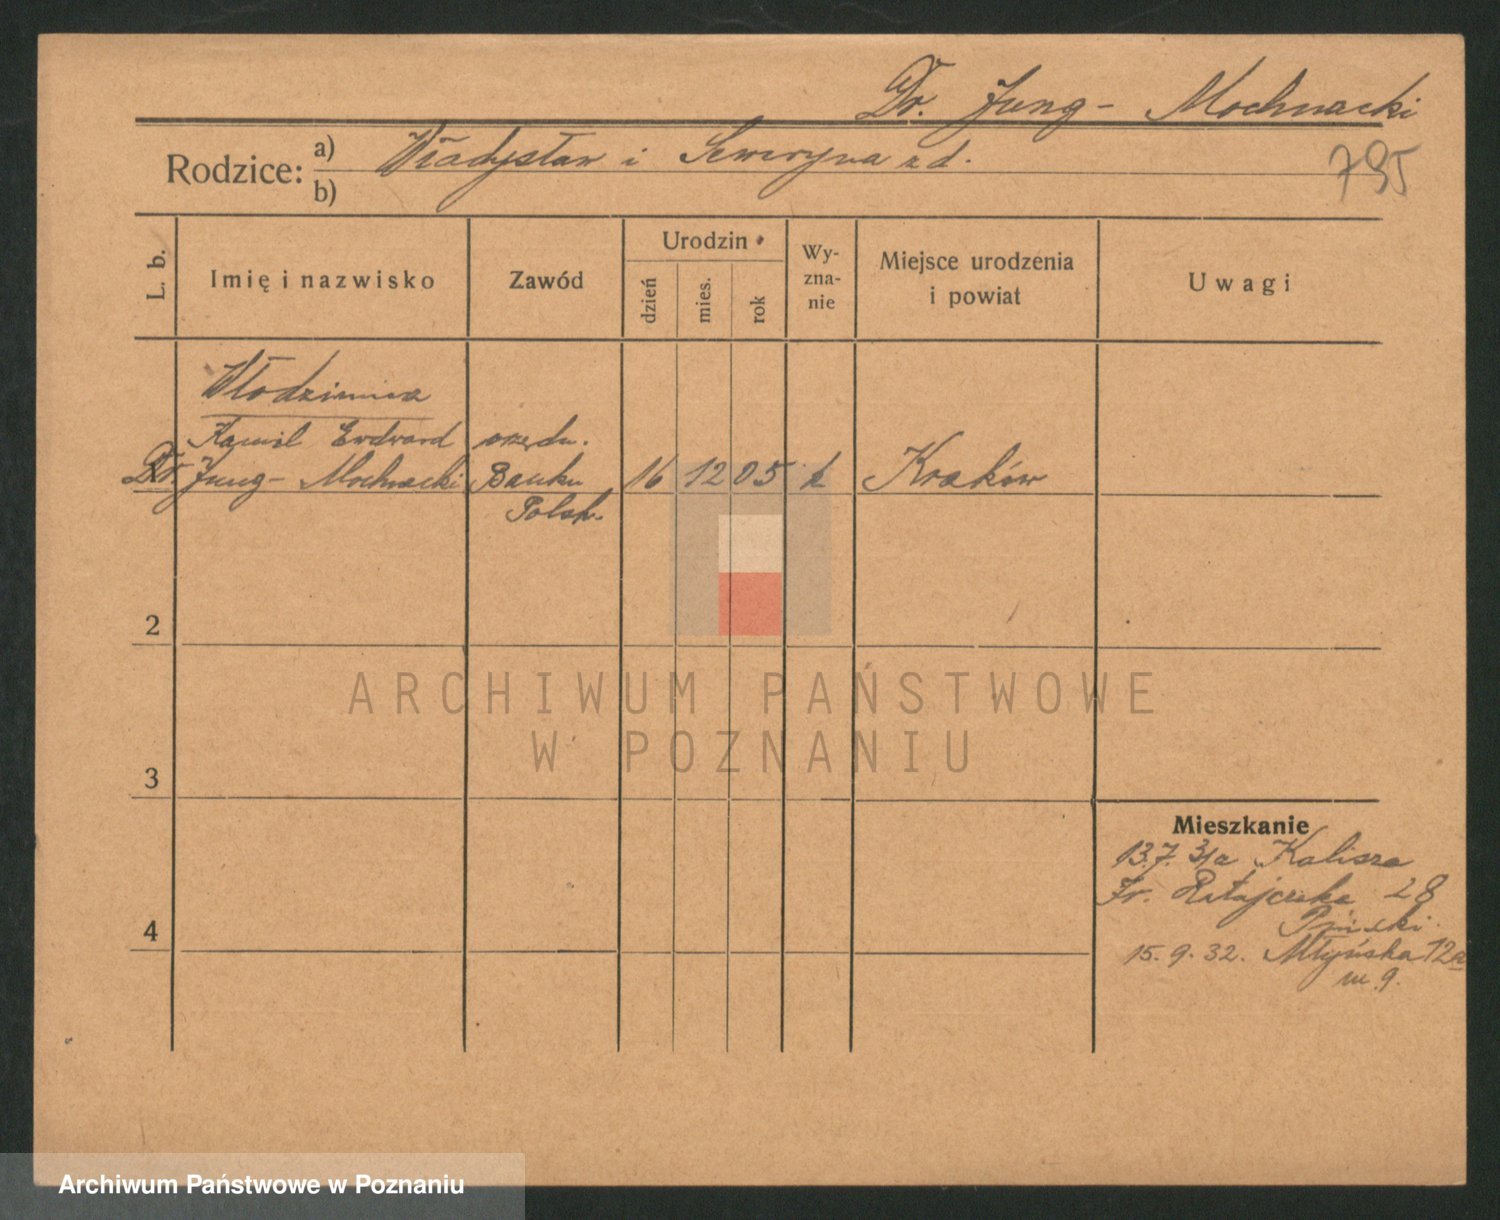 Dr. Jung- Mochnacki
Rodzice: a) Władysław i Seweryna z d.
b)
795
L. b.
Imię i nazwisko
Zawód
Urodzin
dzień
mies.
rok
Wy-
zna-
nie
Miejsce urodzenia
i powiat
Uwagi
Włodzimierz
Kamil Edward
Dr. Jung- Mochnacki
urzędn.
Banku
Polsk.
16 12 05 k
Kraków
2
3
4
Mieszkanie
13.7. 31 a Kalisza
Fr. Ratajczaka 28
15. 9. 32. Młyńska 12a
m 9.
ARCHIWUM PAŃSTWOWE
W POZNANIU
Archiwum Państwowe w Poznaniu